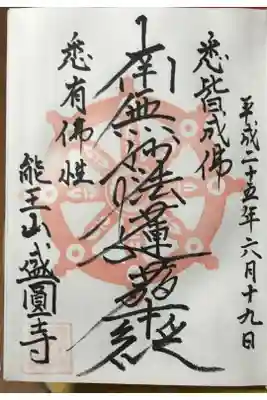 平成二十五年六月十九日
悉皆成佛
南無妙法蓮華経
悉有佛性
能王山盛圓寺